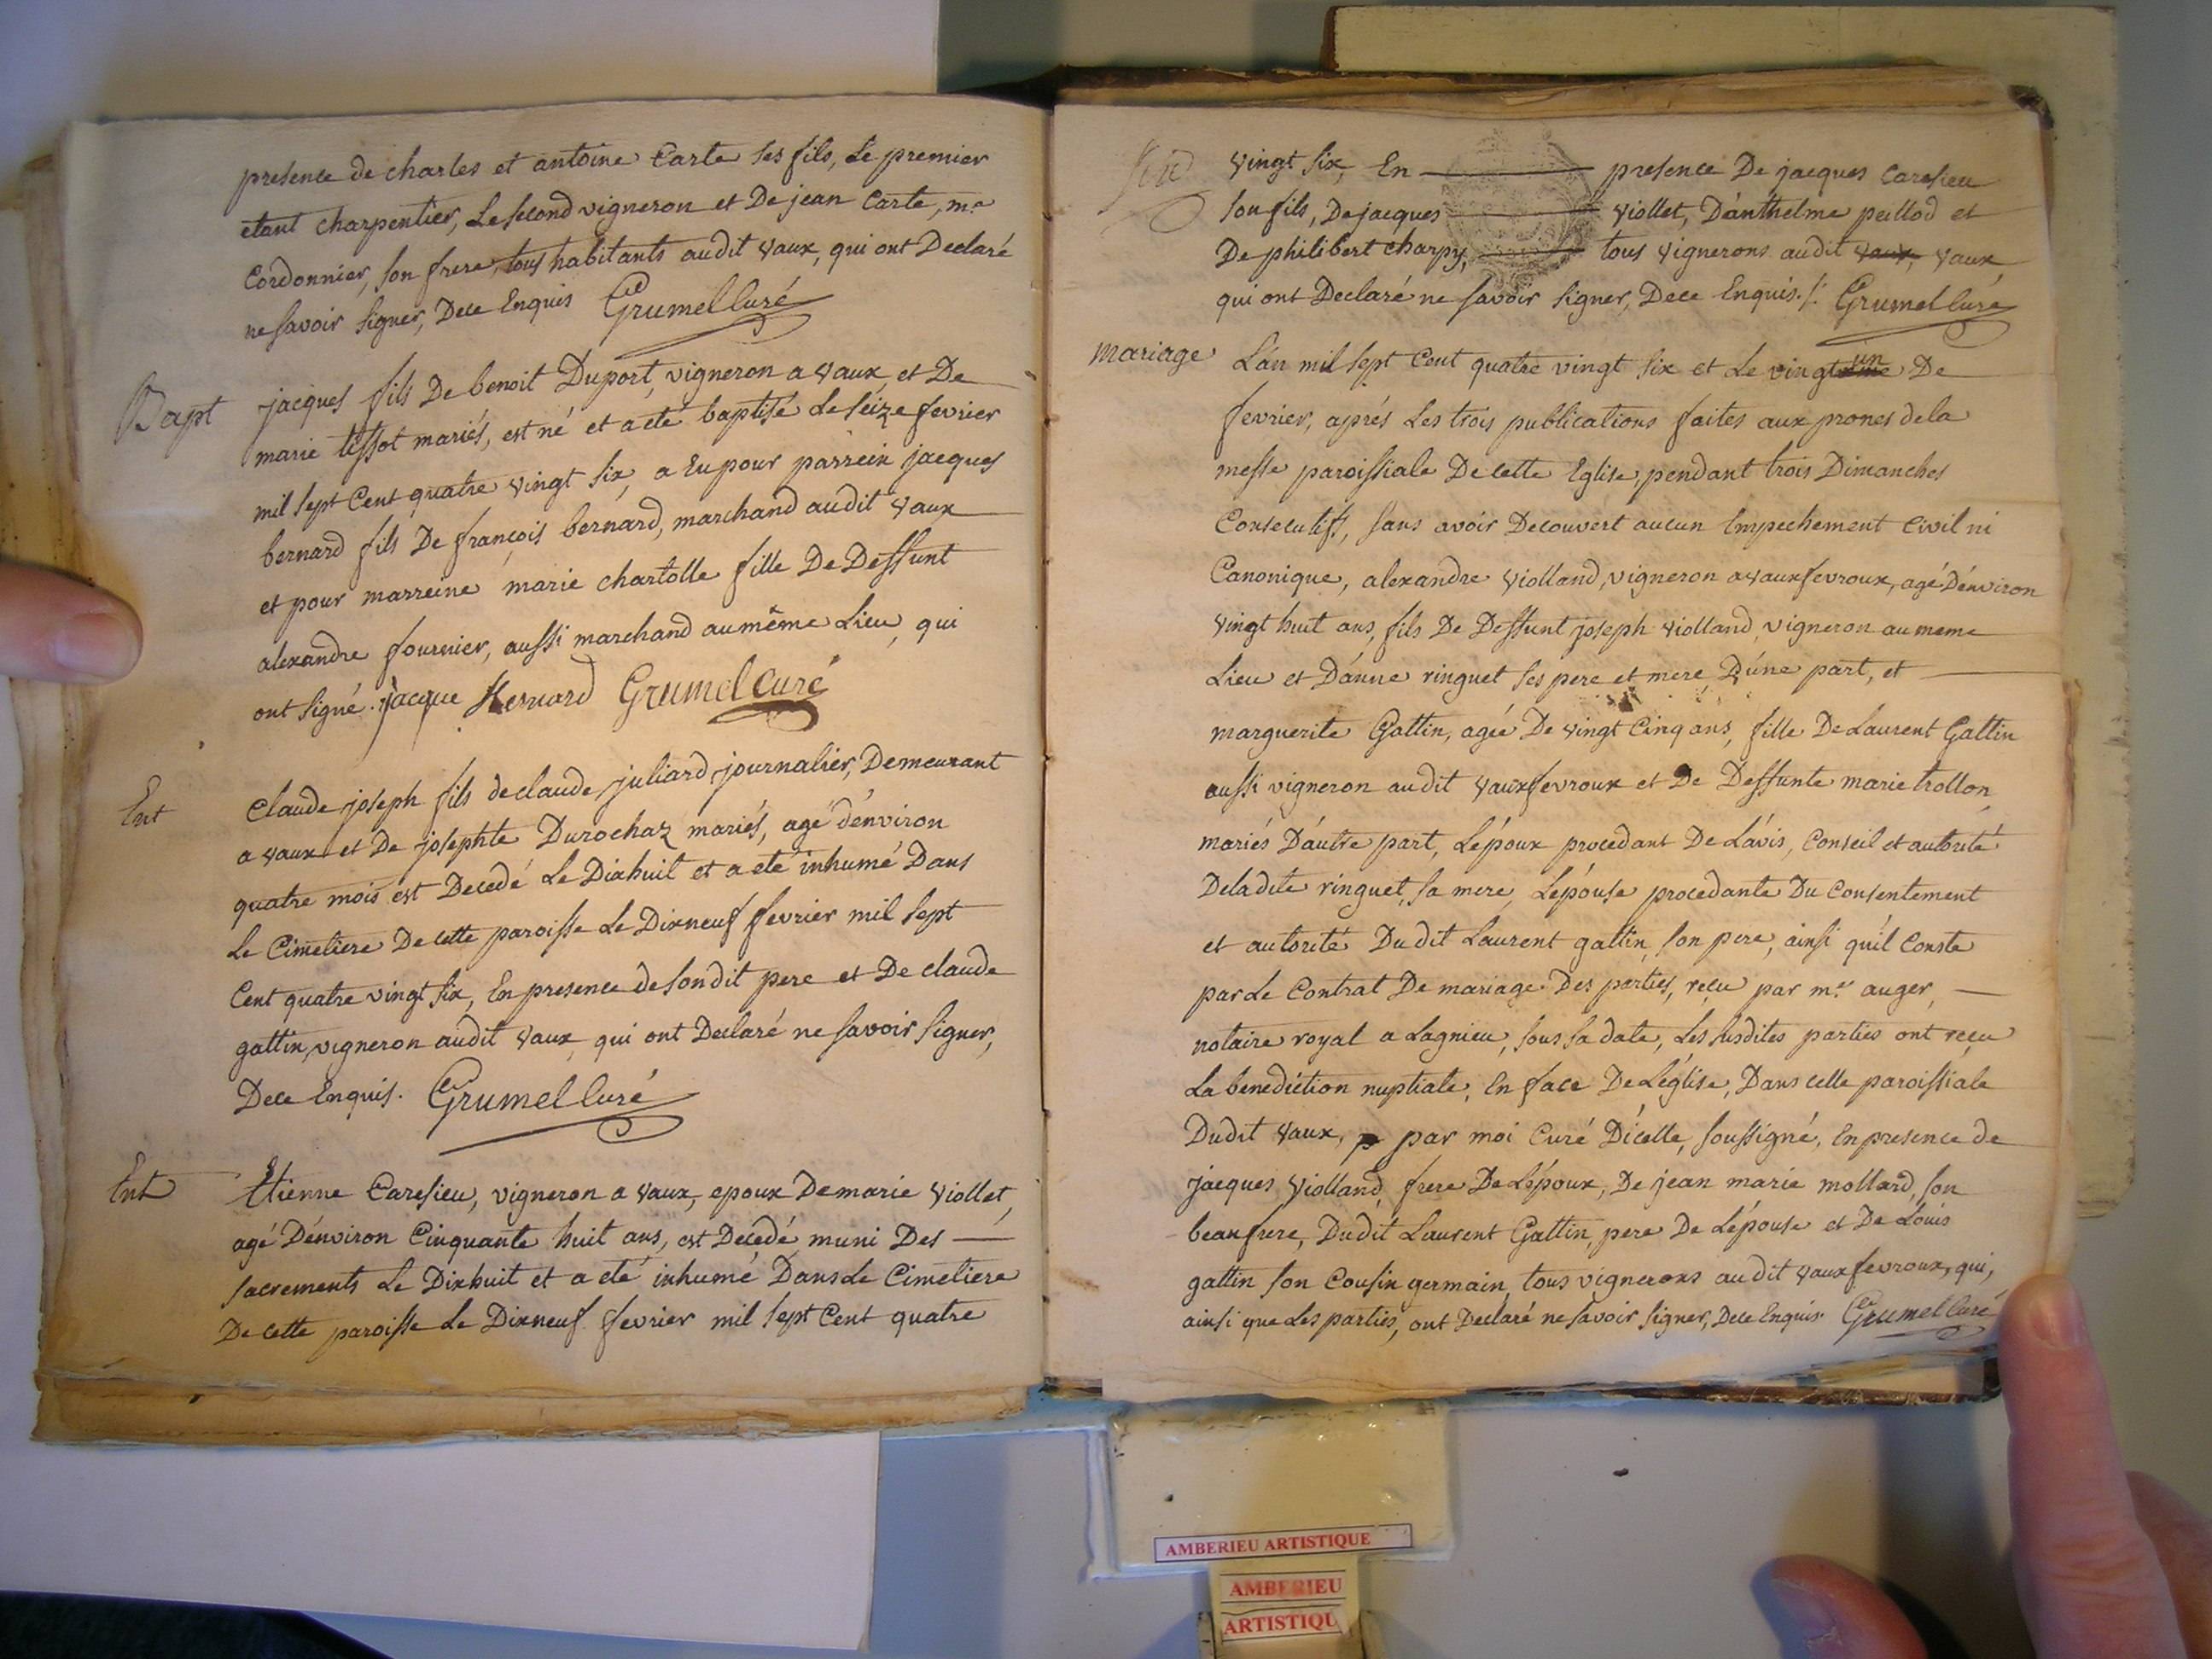 presence de charles et antoine Carte ses fils, Le premier
etant charpentier, Le second vigneron et De jean Carte, me
Cordonnier, son frere, tous habitants audit vaux, qui ont Declaré
ne savoir signer, Dece Enquis Grumel Curé
Bapt
jacques fils De benoit Duport, vigneron a vaux et De
marie tissot mariés, est né et a eté baptisé Le seize fevrier
mil sept Cent quatre vingt six, a Eu pour parrein jacques
bernard fils De françois bernard, marchand audit vaux
et pour marreine marie chartolle fille De Deffunt
alexandre fournier, aussi marchand au même Lieu, qui
ont signé. jacque Bernard Grumel Curé
Ent
Claude joseph fils de claude juliard journalier, Demeurant
a vaux et De josephte Durochaz mariés, agé d'énviron
quatre mois est Decedé Le Dixhuit et a eté inhumé Dans
Le Cimetiere De cette paroisse Le Dixneuf fevrier mil sept
Cent quatre vingt six, En presence de son dit pere et De claude
gattin, vigneron audit vaux, qui ont Declaré ne savoir signer,
Dece Enquis. Grumel Curé
Ent
Etienne Caresieu, vigneron a vaux, epoux De marie viollet,
agé D'énviron Cinquante huit ans, est Decedé muni Des
sacrements Le Dixhuit et a eté inhumé Dans Le Cimetiere
De cette paroisse Le Dixneuf fevrier mil sept Cent quatre
vingt six, En presence De jacques Caresieu
son fils, De jacques viollet, D'ánthelme peillod et
De philibert charpy, tous vignerons audit vaux, vaux,
qui ont Declaré ne savoir signer, Dece Enquis ./. Grumel Curé
mariage
L'án mil sept Cent quatre vingt six et Le vingt un De
fevrier, aprés Les trois publications faites aux prones de la
messe paroissiale De cette Eglise, pendant trois Dimanches
Consecutifs, sans avoir Decouvert aucun Empechement Civil ni
Canonique, alexandre violland, vigneron a vauxfevroux, agé D'énviron
vingt huit ans, fils De Deffunt joseph violland vigneron au meme
Lieu et D'ánne ringuet ses pere et mere D'úne part, et
marguerite Gattin, agée De vingt Cinq ans, fille De Laurent Gattin
aussi vigneron audit vauxfevroux et De Deffunte marie trollon
mariés D'áutre part, L'époux procedant De L'ávis, Conseil et autorité
De ladite ringuet, sa mere, L'épouse procedante Du Consentement
et autorité Dudit Laurent gattin, son pere, ainsi qu'il Conste
par Le Contrat De mariage Des parties, reçu par me auger,
notaire royal a Lagnieu, sous sa date, Les susdites parties ont reçu
La benediction nuptiale, En face De L'église, Dans celle paroissiale
Dudit vaux, p par moi Curé D'icelle, soussigné, En presence de
jacques violland frere De L'époux, De jean marie mollard, son
beaufrere, Dudit Laurent Gattin, pere De L'épouse et De Louis
gattin son Cousin germain, tous vignerons audit vauxfevroux, qui,
ainsi que Les parties, ont Declaré ne savoir signer, Dece Enquis. Grumel Curé
AMBERIEU ARTISTIQUE
AMBERIEU
ARTISTIQU